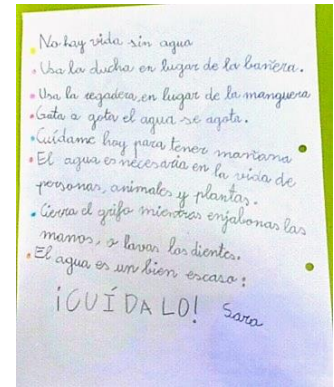 No hay vida sin agua
Usa la ducha en lugar de la bañera.
Usa la regadera, en lugar de la manguera
Gota a gota el agua se agota.
Cuídame hoy para tener mañana
El agua es necesaria en la vida de
personas, animales y plantas.
Cierra el grifo mientras enjabonas las
manos, o lavas los dientes.
El agua es un bien escaso:
¡CUÍDALO! Sara